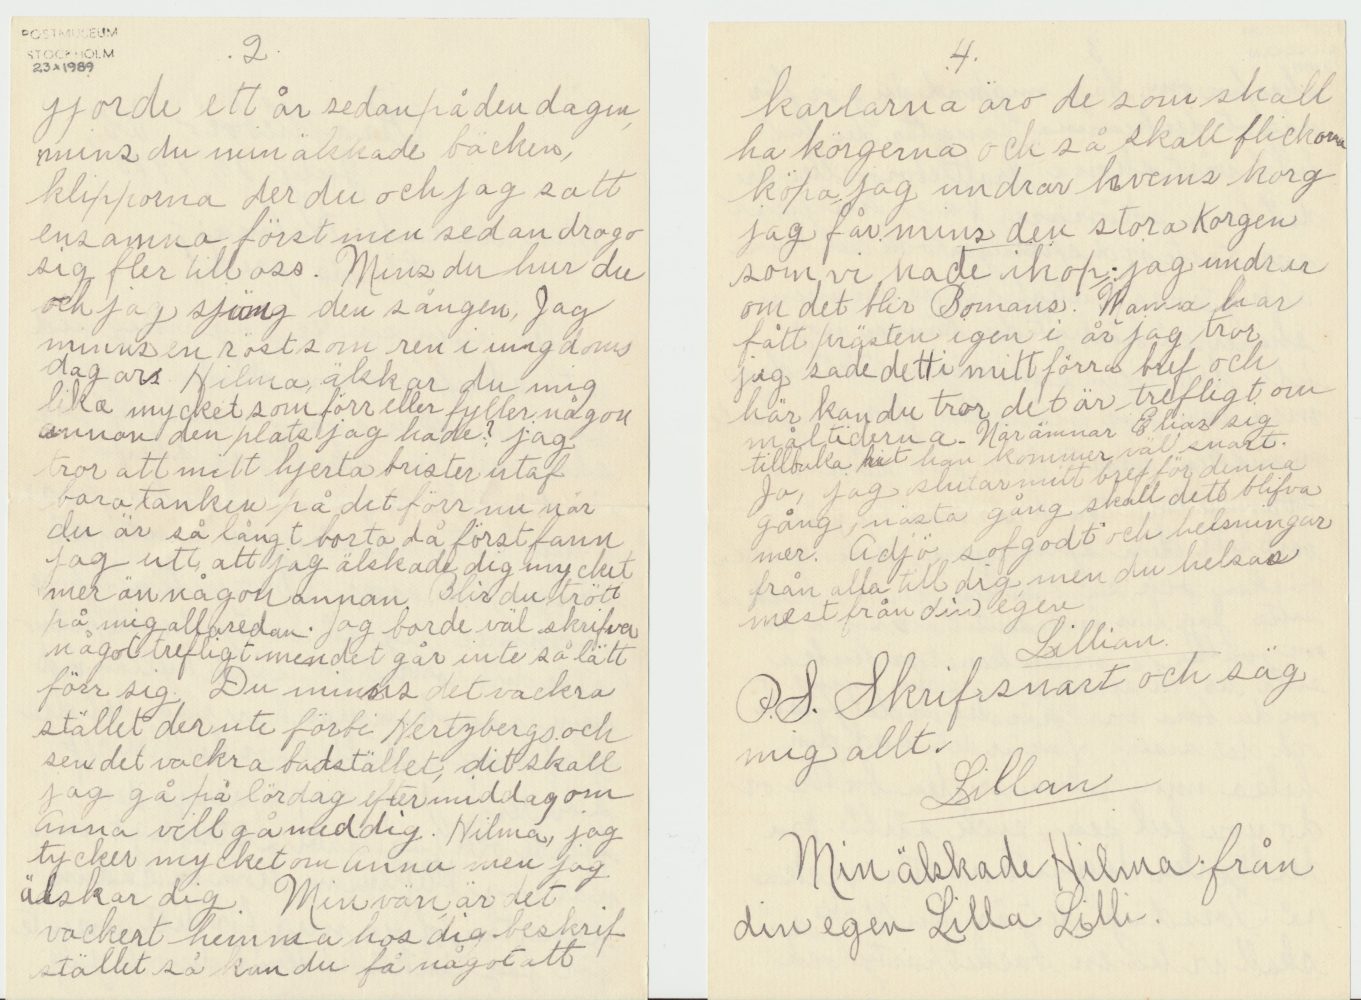 POSTMUSEUM
STOCKHOLM
23 X 1989
. 2 .
gjorde ett år sedan på den dagen,
mins du min älskade bäcken,
klipporna der du och jag satt
ensamna först men sedan drogo
sig fler till oss. Mins du hur du
och jag sjöng den sången, Jag
minns en röst som ren i ungdoms
dagars Hilma, älskar du mig
lika mycket som förr eller fyller någon
annan den plats jag hade? jag
tror att mitt hjerta brister utaf
bara tanken på det förr nu när
du är så långt borta då först fann
jag ut, att jag älskade dig mycket
mer än någon annan. Blir du trött
på mig allaredan. Jag borde väl skrifva
något trefligt men det går inte så lätt
förr sig. Du minns det vackra
stället der ute förbi Hertzbergs och
sen det vackra badstället, dit skall
jag gå på lördag eftermiddag om
Anna vill gå med dig. Hilma, jag
tycker mycket om Anna men jag
älskar dig. Min vän är det
vackert hemma hos dig beskrif
stället så kan du få något att
.4.
karlarna äro de som skall
ha körgerna och så skall flickorna
köpa, jag undrar hvems korg
jag får. mins den stora Korgen
som vi hade ihop; jag undrer
om det blir Bomans. Wanna har
fått prästen igen i år jag tror
jag sade dett i mitt förra bref och
här kan du tror det är trefligt om
måltiderna. När ämnar Elias sig
tillbuka hit han kommer väl snart.
Jo, jag slutar mitt bref för denna
gång, nästa gång skall dett blifva
mer. Adjö sof godt och helsningar
från alla till dig men du helsas
mest från din egen
Lillian.
P.S. Skrif snart och säg
mig allt.
Lillan
Min älskade Hilma från
din egen Lilla Lilli.